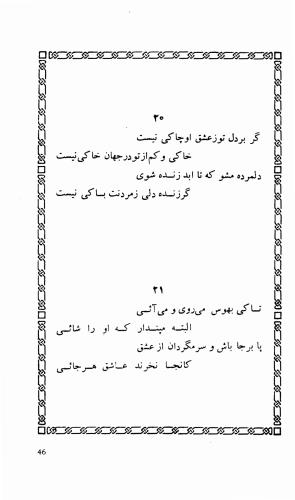 ۲۰
گر بردل توزعشق اوچاکی نیست
خاکی وکم‌ازتودرجهان خاکی‌نیست
دلمرده مشو که تا ابد زنده شوی
گرزنده دلی زمردنت باکی نیست
۲۱
تاکی بهوس می‌روی و می‌آئی
البته مپندار که او را شائی
پا برجا باش و سرمگردان از عشق
کانجا نخرند عاشق هرجائی
46